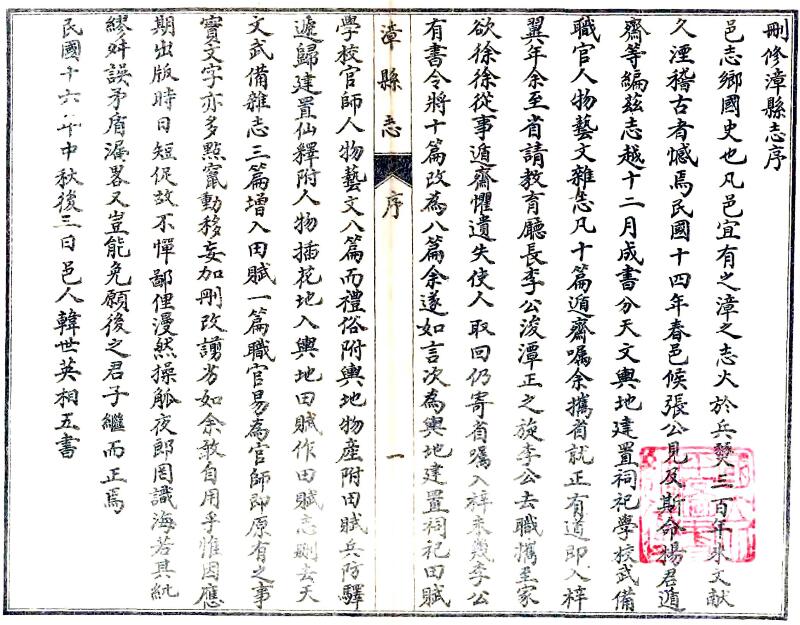 刪修漳縣志序
邑志鄉國史也凡邑宜有之漳之志火於兵燹三百年來文献
久湮稽古者憾焉民國十四年春邑候張公見及斯命揚君遁
齋等編茲志越十二月成書分天文輿地建置祠祀學校武備
職官人物藝文雜志凡十篇遁齋囑余攜省就正有道即入梓
翼年余至省請教育廳長李公浚潭正之旋李公去職攜至家
欲徐徐從事遁齋懼遺失使人取回仍寄省囑入梓未幾李公
有書令將十篇改為八篇余遂如言次為輿地建置祠祀田賦
漳縣志
序
一
學校官師人物藝文八篇而禮俗附輿地物產附田賦兵防驛
遞歸建置仙釋附人物插花地入輿地田賦作田賦志刪去天
文武備雜志三篇增入田賦一篇職官易為官師即原有之事
實文字亦多點竄動移妄加刪改謭劣如余敢自用乎惟因應
期出版時日短促故不憚鄙俚漫然操觚夜郎罔識海若其紕
繆舛誤矛盾漏畧又豈能免願後之君子繼而正焉
民國十六年中秋後三日邑人韓世英相五書